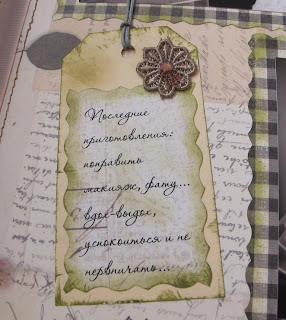 Последние
приготовления:
поправить
макияж, фату...
вдох-выдох,
успокоиться и не
нервничать...